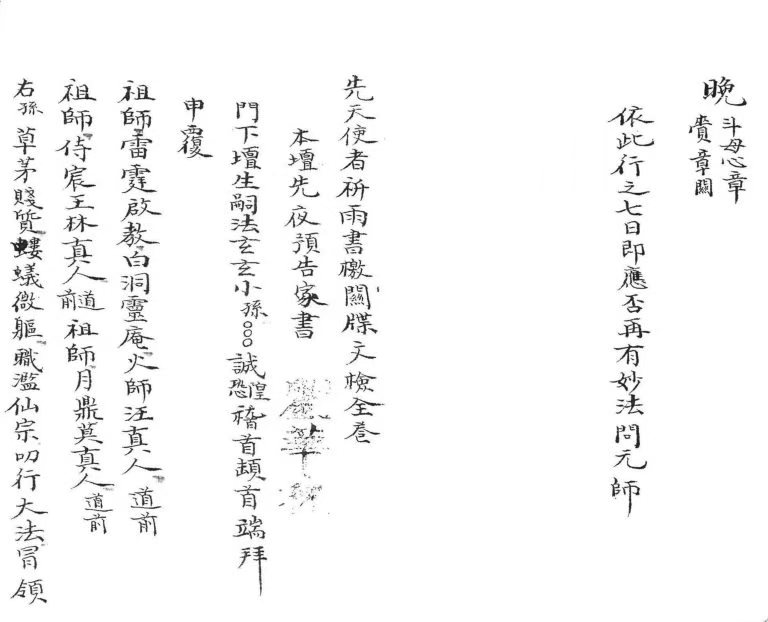 晚 斗母心章
賷章關
依此行之七日即應否再有妙法問元師
先天使者祈雨書檄關牒文檢全卷
本壇先夜預告家書
門下壇生嗣法玄玄小孫○○○誠惶誠恐稽首頓首端拜
申覆
祖師雷霆啟教白洞靈庵火師汪真人 道前
祖師侍宸王林真人道前 祖師月鼎莫真人道前
右孫草茅賤質螻蟻微軀職濫仙宗叨行大法冒領